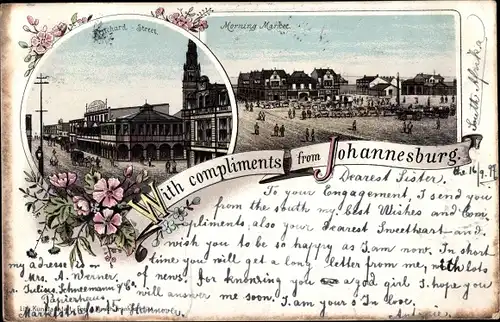 Pritchard Street.
Morning Market.
With compliments from Johannesburg.
South Afrika
the 16/9. 97
Dearest Sister.
To your Engagement, I send you
from the south my best Wishes and Com
pliments, also your dearest Sweetheart and
I wish you to be so happy as I am now. In short
time you will get a long letter from me, with lots
of news. For knowing you a god girl I hope you
will answer me soon. I am your s in love
my adress is:
Mrs. A. Werner,
Julius Schneemann & Co.
Papierhaus
Marktstrasse 45 Hannover